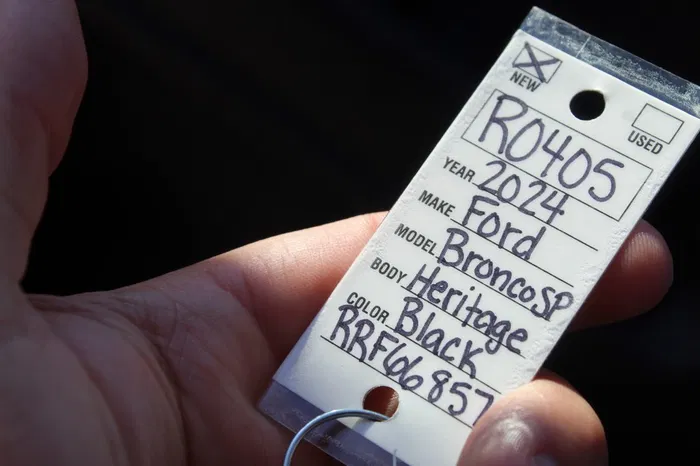 NEW
USED
R0405
YEAR 2024
MAKE Ford
MODEL Bronco SP
BODY Heritage
COLOR Black
RRF66857